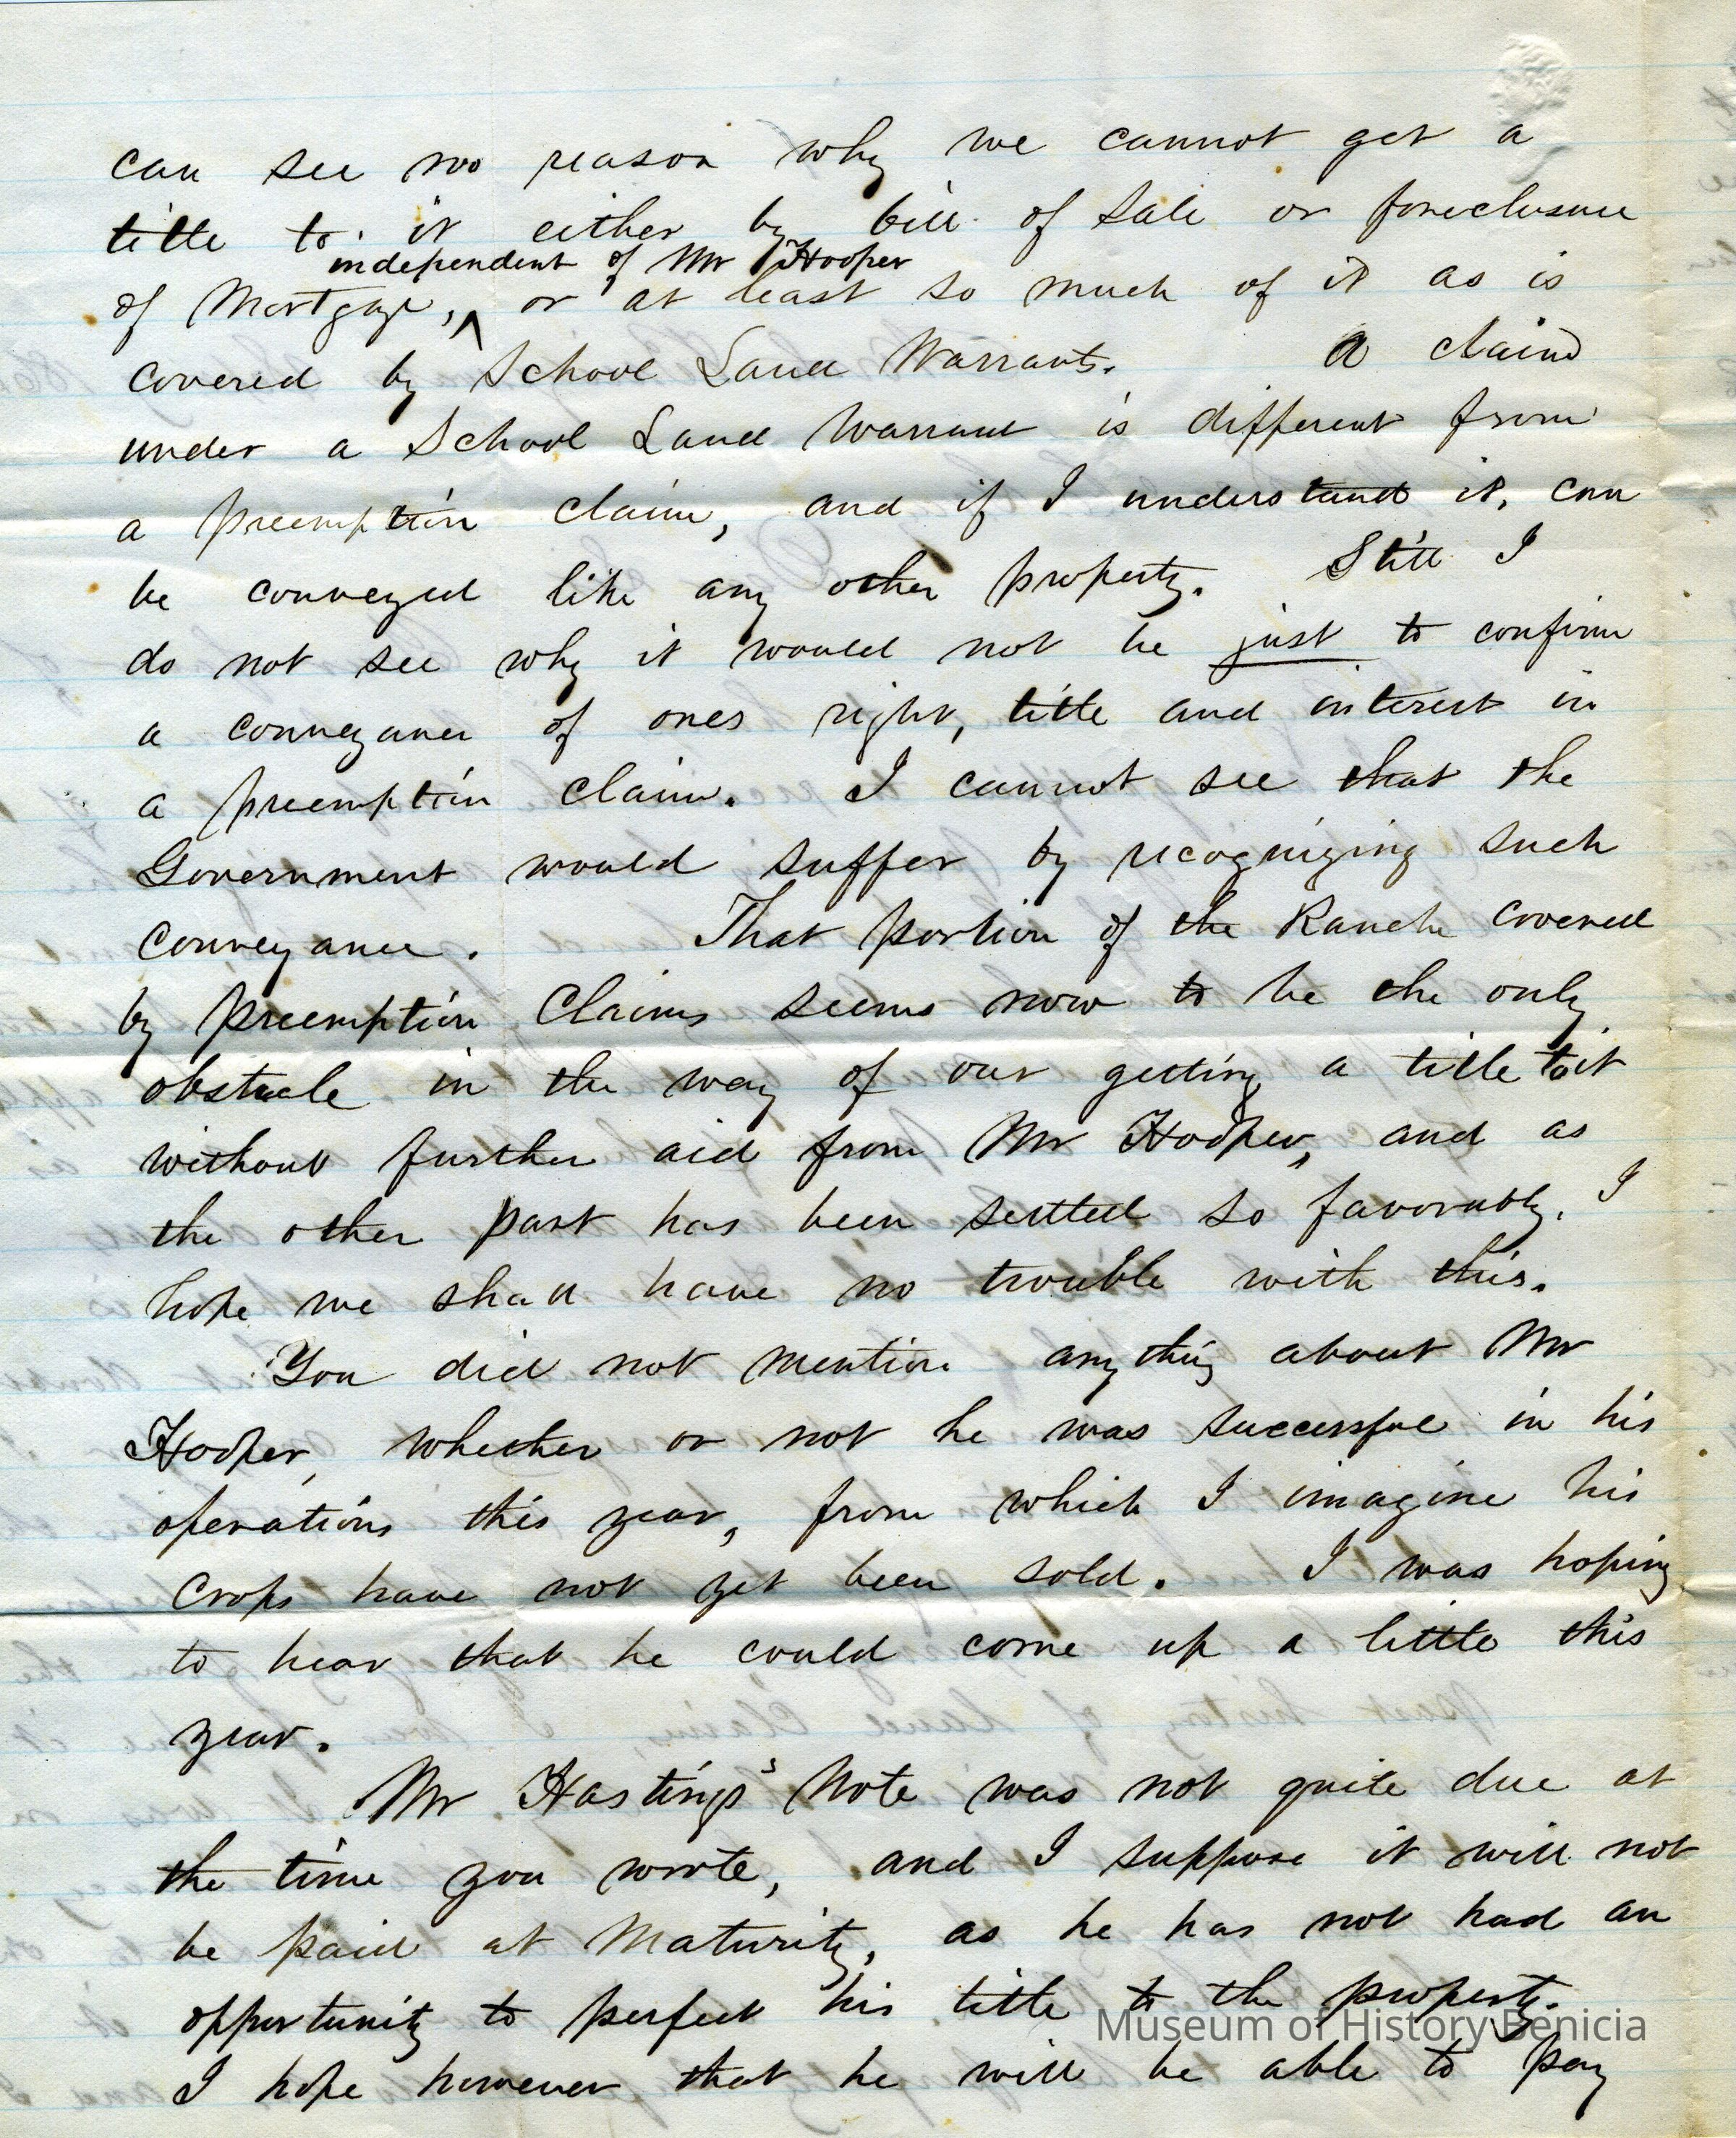 can see no reason why we cannot get a
title to it either by bill of Sale or foreclosure
independent of Mr Hooper
of Mortgage, ^ or at least so much of it as is
covered by School Land Warrants. A claim
under a School Land Warrant is different from
a preemption claim, and if I understand it, can
be conveyed like any other property. Still I
do not see why it would not be just to confirm
a conveyance of ones right, title and interest in
a preemption claim. I cannot see that the
Government would suffer by recognizing such
conveyance. That portion of the Ranch covered
by preemption Claims seems now to be the only
obstacle in the way of our getting a title to it
without further aid from Mr Hooper, and as
the other part has been settled so favorably, I
hope we shall have no trouble with this.
You did not mention any thing about Mr
Hooper, whether or not he was successful in his
operations this year, from which I imagine his
Crops have not yet been sold. I was hoping
to hear that he could come up a little this
year.
Mr Hastings' Note was not quite due at
the time you wrote, and I suppose it will not
be paid at Maturity, as he has not had an
opportunity to perfect his title to the property.
I hope however that he will be able to pay
Museum of History Benicia